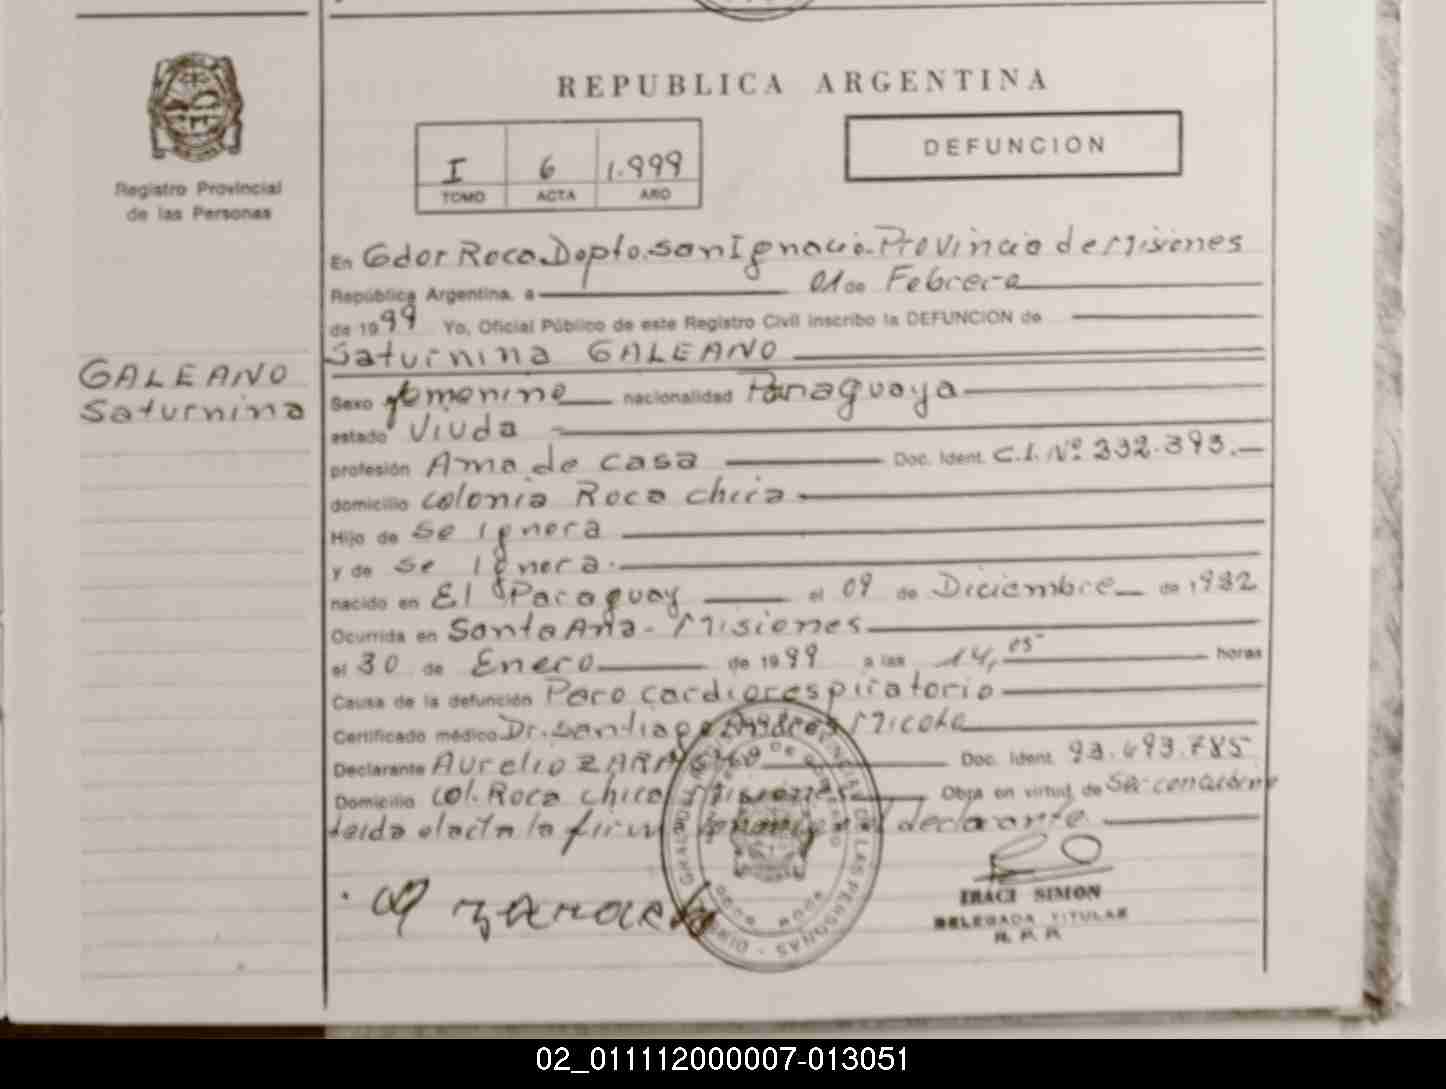 REPUBLICA ARGENTINA
I 6 1.999
TOMO ACTA AÑO
DEFUNCION
Registro Provincial
de las Personas
En Gdor Roca. Dopto. San Ignacio. Provincia de Misiones
República Argentina, a 01 de Febrero
de 1999 Yo, Oficial Público de este Registro Civil inscribo la DEFUNCION de
Saturnina GALEANO
GALEANO
Saturnina
Sexo femenino nacionalidad Paraguaya
estado Viuda
profesión Ama de casa Doc. Ident. C.I. Nº 332.393.
domicilio colonia Roca chica
Hijo de se Ignora
y de se Ignora.
nacido en El Paraguay el 09 de Diciembre de 1932
Ocurrida en Santa Ana - Misiones
el 30 de Enero de 1999 a las 14,05 horas
Causa de la defunción Paro cardiorespiratorio
Certificado médico Dr. Santiago Andres
Declarante Aurelio Doc. Ident. 93.693.785
Domicilio col. Roca chica Misiones Obra en virtud de
leida el acta la firma el declarante
IRACI SIMON
DELEGADA TITULAR
R. P. P.
02_011112000007-013051